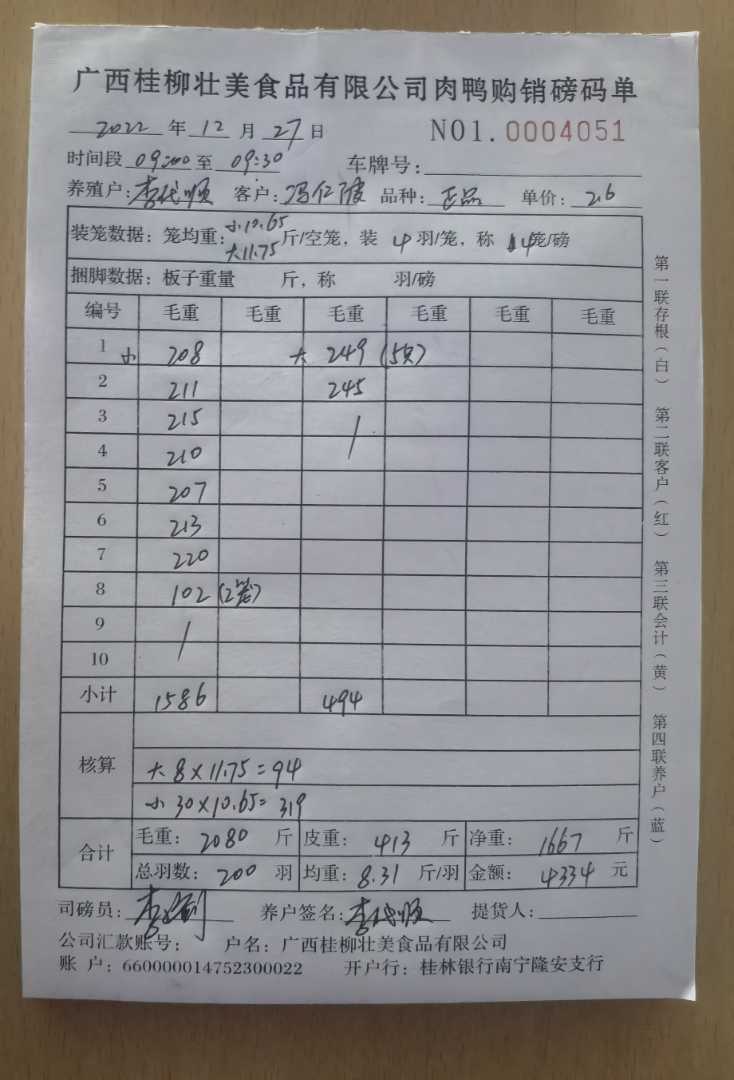 广西桂柳壮美食品有限公司肉鸭购销磅码单
2022 年 12 月 27 日 NO1.0004051
时间段 09:00 至 09:30 车牌号:
养殖户: 李代顺 客户: 冯仁 品种: 正品 单价: 2.6
装笼数据: 笼均重: 小10.65 大11.75 斤/空笼, 装 4 羽/笼, 称 4 笼/磅
捆脚数据: 板子重量 斤, 称 羽/磅
编号 毛重 毛重 毛重 毛重 毛重 毛重
1 小 208 大 249 (5只)
2 211 245
3 215 /
4 210
5 207
6 213
7 220
8 102 (2笼)
9 /
10
小计 1586 494
核算
大 8×11.75=94
小 30×10.65=319
合计
毛重: 2080 斤 皮重: 413 斤 净重: 1667 斤
总羽数: 200 羽 均重: 8.31 斤/羽 金额: 4334 元
司磅员: 李 养户签名: 李代顺 提货人:
公司汇款账号: 户名: 广西桂柳壮美食品有限公司
账 户: 660000014752300022 开户行: 桂林银行南宁隆安支行
第一联存根(白) 第二联客户(红) 第三联会计(黄) 第四联养户(蓝)